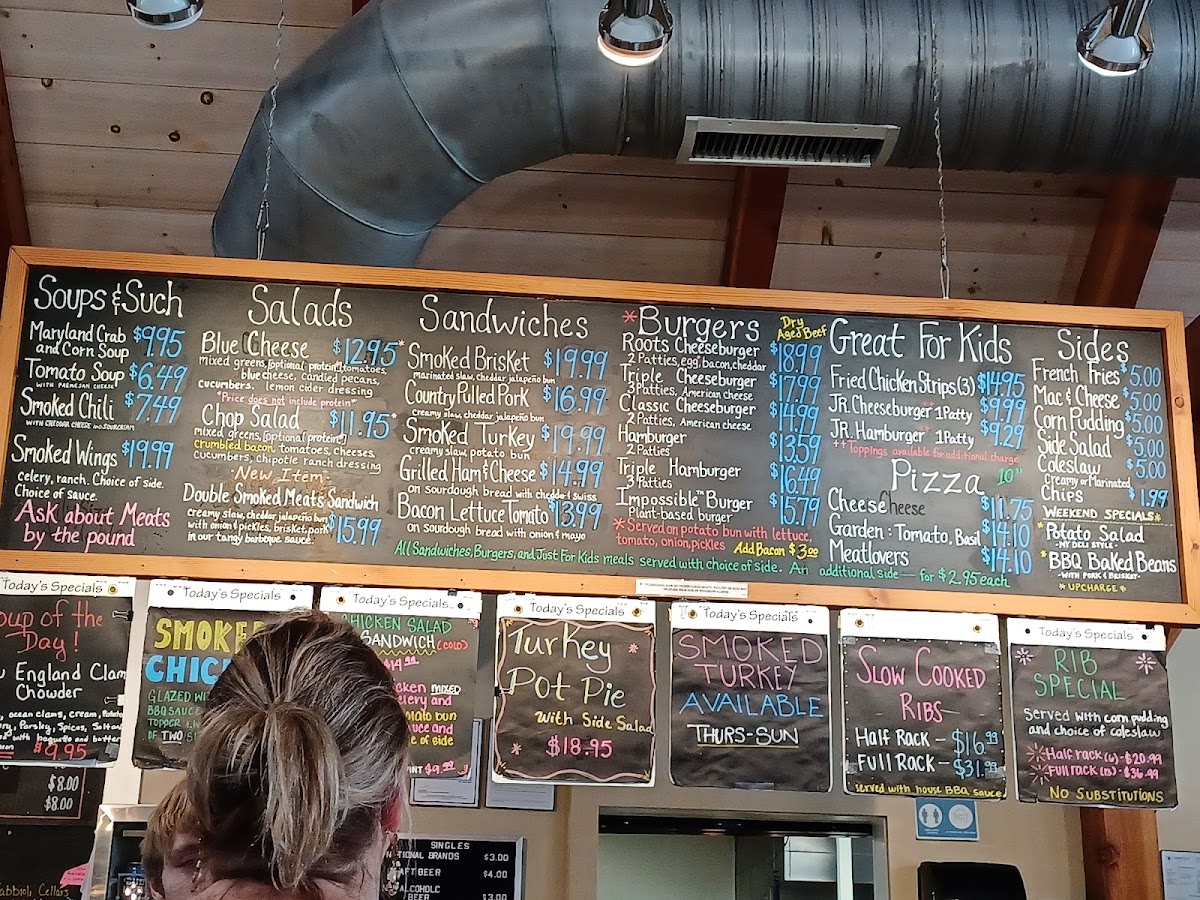 Soups & Such
Maryland Crab and Corn Soup $9.95
Tomato Soup $6.49
WITH PARMESAN CHEESE
Smoked Chili $7.49
WITH CHEDDAR CHEESE AND SOUR CREAM
Smoked Wings $19.99
celery, ranch. Choice of side.
Choice of sauce.
Ask about Meats
by the pound
Salads
Blue Cheese $12.95*
mixed greens, [optional protein] tomatoes,
blue cheese, candied pecans,
cucumbers, lemon cider dressing
*Price does not include protein*
Chop Salad $11.95*
mixed greens, [optional protein]
crumbled bacon, tomatoes, cheeses,
cucumbers, chipotle ranch dressing
New Item
Double Smoked Meats Sandwich
creamy slaw, cheddar, jalapeño bun
with onion & pickles, brisket, pork
in our tangy barbeque sauce $15.99
Sandwiches
Smoked Brisket $19.99
marinated slaw, cheddar, jalapeño bun
Country Pulled Pork $16.99
creamy slaw, cheddar, jalapeño bun
Smoked Turkey $19.99
creamy slaw, potato bun
Grilled Ham & Cheese $14.99
on sourdough bread with cheddar & swiss
Bacon Lettuce Tomato $13.99
on sourdough bread with onion & mayo
*Burgers Dry Aged Beef
Roots Cheeseburger $18.99
2 Patties, egg, bacon, cheddar
Triple Cheeseburger $17.99
3 Patties, American cheese
Classic Cheeseburger $14.99
2 Patties, American cheese
Hamburger $13.59
2 Patties
Triple Hamburger $16.49
3 Patties
Impossible™ Burger $15.79
Plant-based burger
*Served on potato bun with lettuce,
tomato, onion, pickles Add Bacon $3.00
Great For Kids
Fried Chicken Strips (3) $14.95
JR. Cheeseburger ++ 1 Patty $9.99
JR. Hamburger ++ 1 Patty $9.29
++Toppings available for additional charge
Pizza 10"
Cheese $11.75
Garden: Tomato, Basil $14.10
Meatlovers $14.10
Sides
French Fries $5.00
Mac & Cheese $5.00
Corn Pudding $5.00
Side Salad $5.00
Coleslaw $5.00
Creamy or Marinated
Chips $1.99
WEEKEND SPECIALS*
*Potato Salad
-NY DELI STYLE-
*BBQ Baked Beans
-WITH PORK & BRISKET-
*UPCHARGE*
All Sandwiches, Burgers, and Just For Kids meals served with choice of side. An additional side — for $2.95 each
Today's Specials
oup of the
Day!
England Clam
Chowder
ocean clams, cream,
$9.95
$8.00
$8.00
Today's Specials
SMOKE
CHIC
GLAZED WI
BBQ SAUCE
TOPPED
OF TWO S
Today's Specials
CHICKEN SALAD
SANDWICH (COLD)
$14.99
cken MIXED
elery and
tato bun
uce and
e of side
INT $9.99
Today's Specials
Turkey
Pot Pie
with Side Salad
$18.95
Today's Specials
SMOKED
TURKEY
AVAILABLE
THURS-SUN
Today's Specials
SLOW COOKED
RIBS
Half Rack - $16.99
Full Rack - $31.99
served with house BBQ sauce
Today's Specials
RIB
SPECIAL
Served with corn pudding
and choice of coleslaw
Half rack (6) - $20.99
Full rack (12) - $36.99
NO SUBSTITUTIONS
SINGLES
NATIONAL BRANDS $3.00
AFT BEER $4.00
ALCOHOLC
BEER $3.00
abbioli Cellars